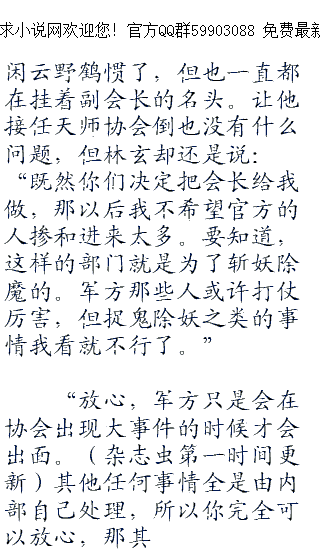 求小说网欢迎您！官方QQ群59903088 免费最新
闲云野鹤惯了，但也一直都
在挂着副会长的名头。让他
接任天师协会倒也没有什么
问题，但林玄却还是说：
“既然你们决定把会长给我
做，那以后我不希望官方的
人掺和进来太多。要知道，
这样的部门就是为了斩妖除
魔的。军方那些人或许打仗
厉害，但捉鬼除妖之类的事
情我看就不行了。”
“放心，军方只是会在
协会出现大事件的时候才会
出面。（杂志虫第一时间更
新）其他任何事情全是由内
部自己处理，所以你完全可
以放心，那其